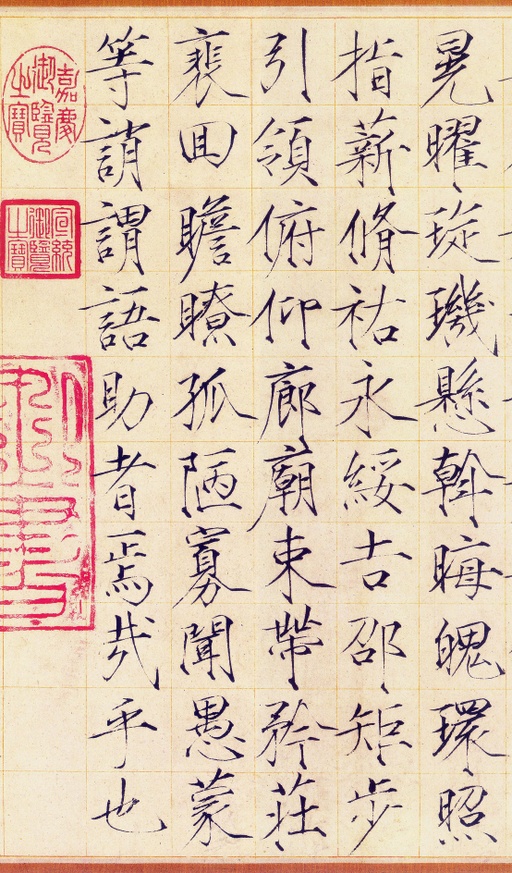 晃曜琁璣懸斡晦魄環照
指薪脩祐永綏吉邵矩步
引領俯仰廊廟束帶矜莊
裵回瞻瞭孤陋寡聞愚蒙
等誚謂語助者焉哉乎也
嘉慶御覽之寶
宣統御覽之寶